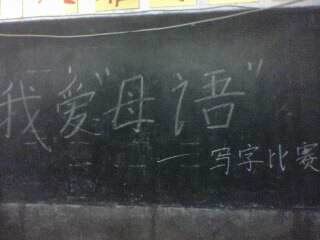 我爱"母语"
——写字比赛